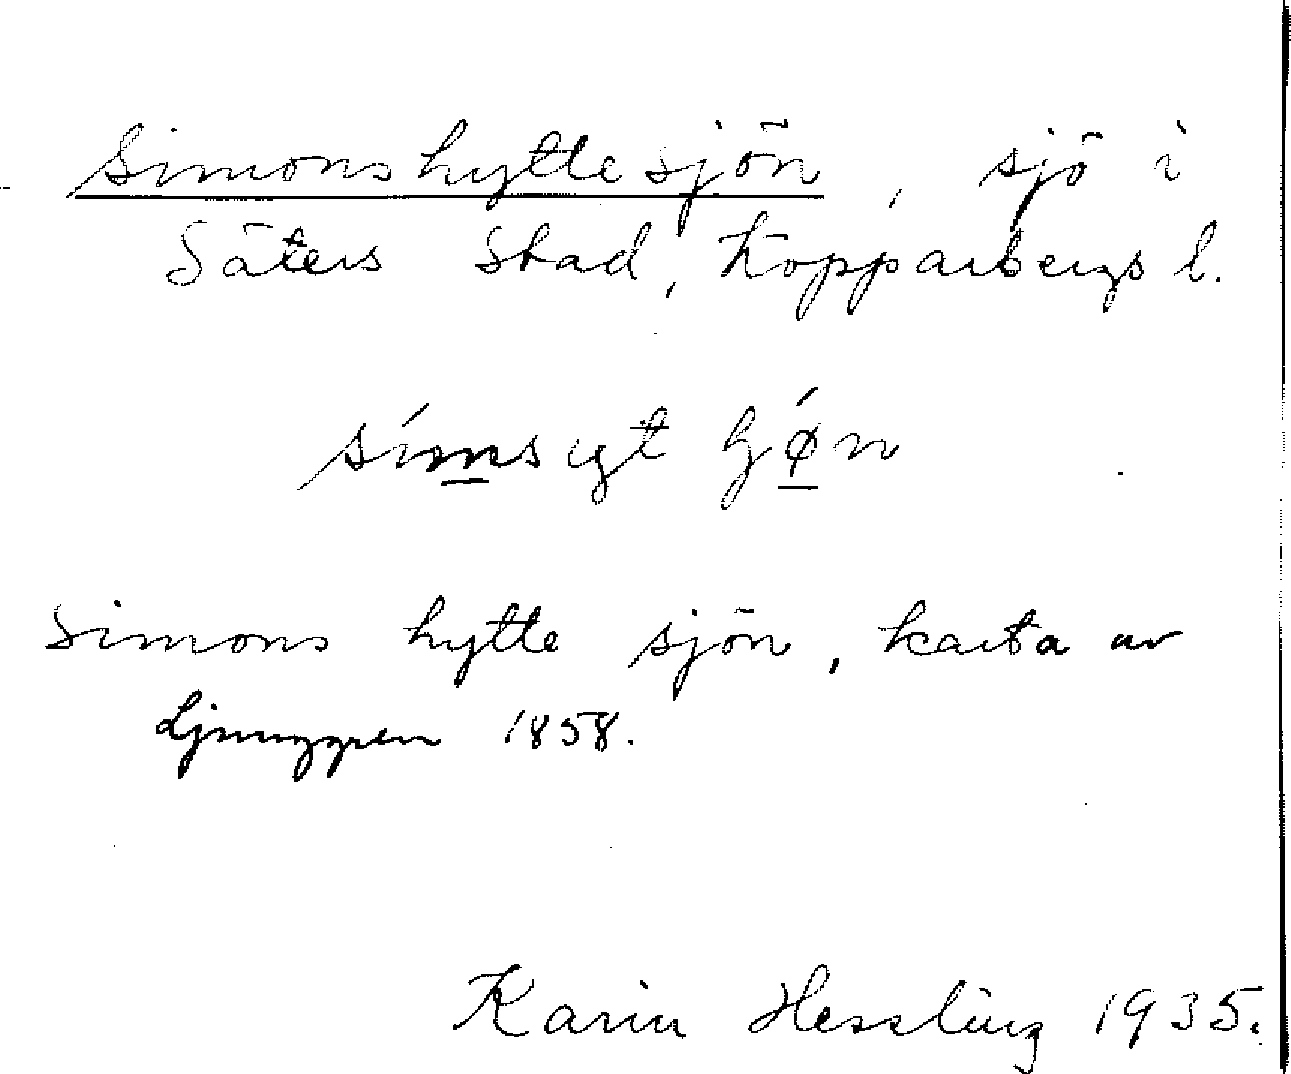 Simonshyttesjön, sjö i
Säters stad, Kopparbergs l.
Simons hytte sjön, karta av
Ljunggren 1858.
Karin Hessling 1935.